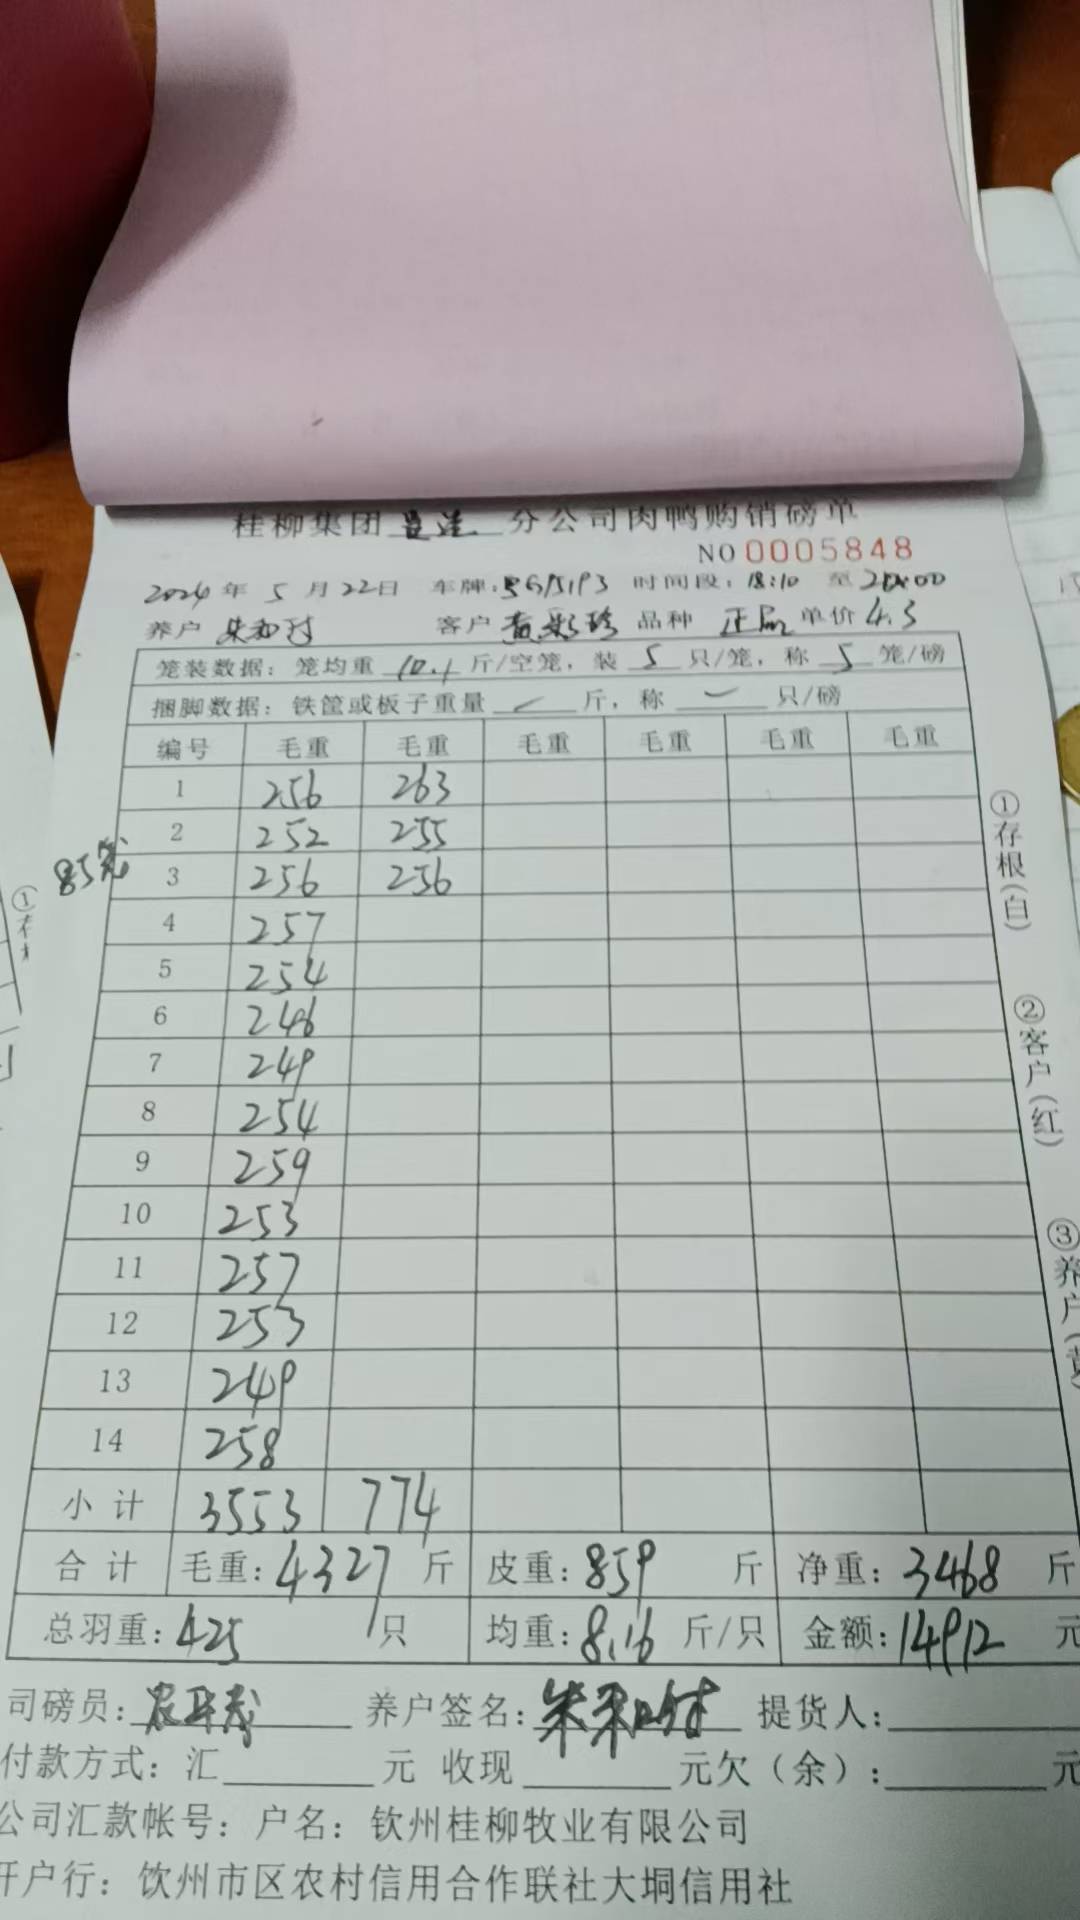 桂柳集团 分公司肉鸭购销磅单
NO 0005848
2024 年 5 月 22 日 车牌: 时间段: 18:10 至 20:00
养户 客户 黄彩珍 品种 单价 4.3
笼装数据: 笼均重 10.1 斤/空笼, 装 5 只/笼, 称 5 笼/磅
捆脚数据: 铁筐或板子重量 斤, 称 只/磅
编号 毛重 毛重 毛重 毛重 毛重 毛重
1 256 263
2 252 255
85笼
3 256 256
4 257
5 254
6 246
7 249
8 254
9 259
10 253
11 257
12 253
13 249
14 258
小计 3553 774
合计 毛重: 4327 斤 皮重: 859 斤 净重: 3468 斤
总羽重: 425 只 均重: 8.16 斤/只 金额: 14912 元
司磅员: 养户签名: 提货人:
付款方式: 汇 元 收现 元欠(余): 元
公司汇款帐号: 户名: 钦州桂柳牧业有限公司
开户行: 钦州市区农村信用合作联社大垌信用社
①存根(白)
②客户(红)
③养户(黄)